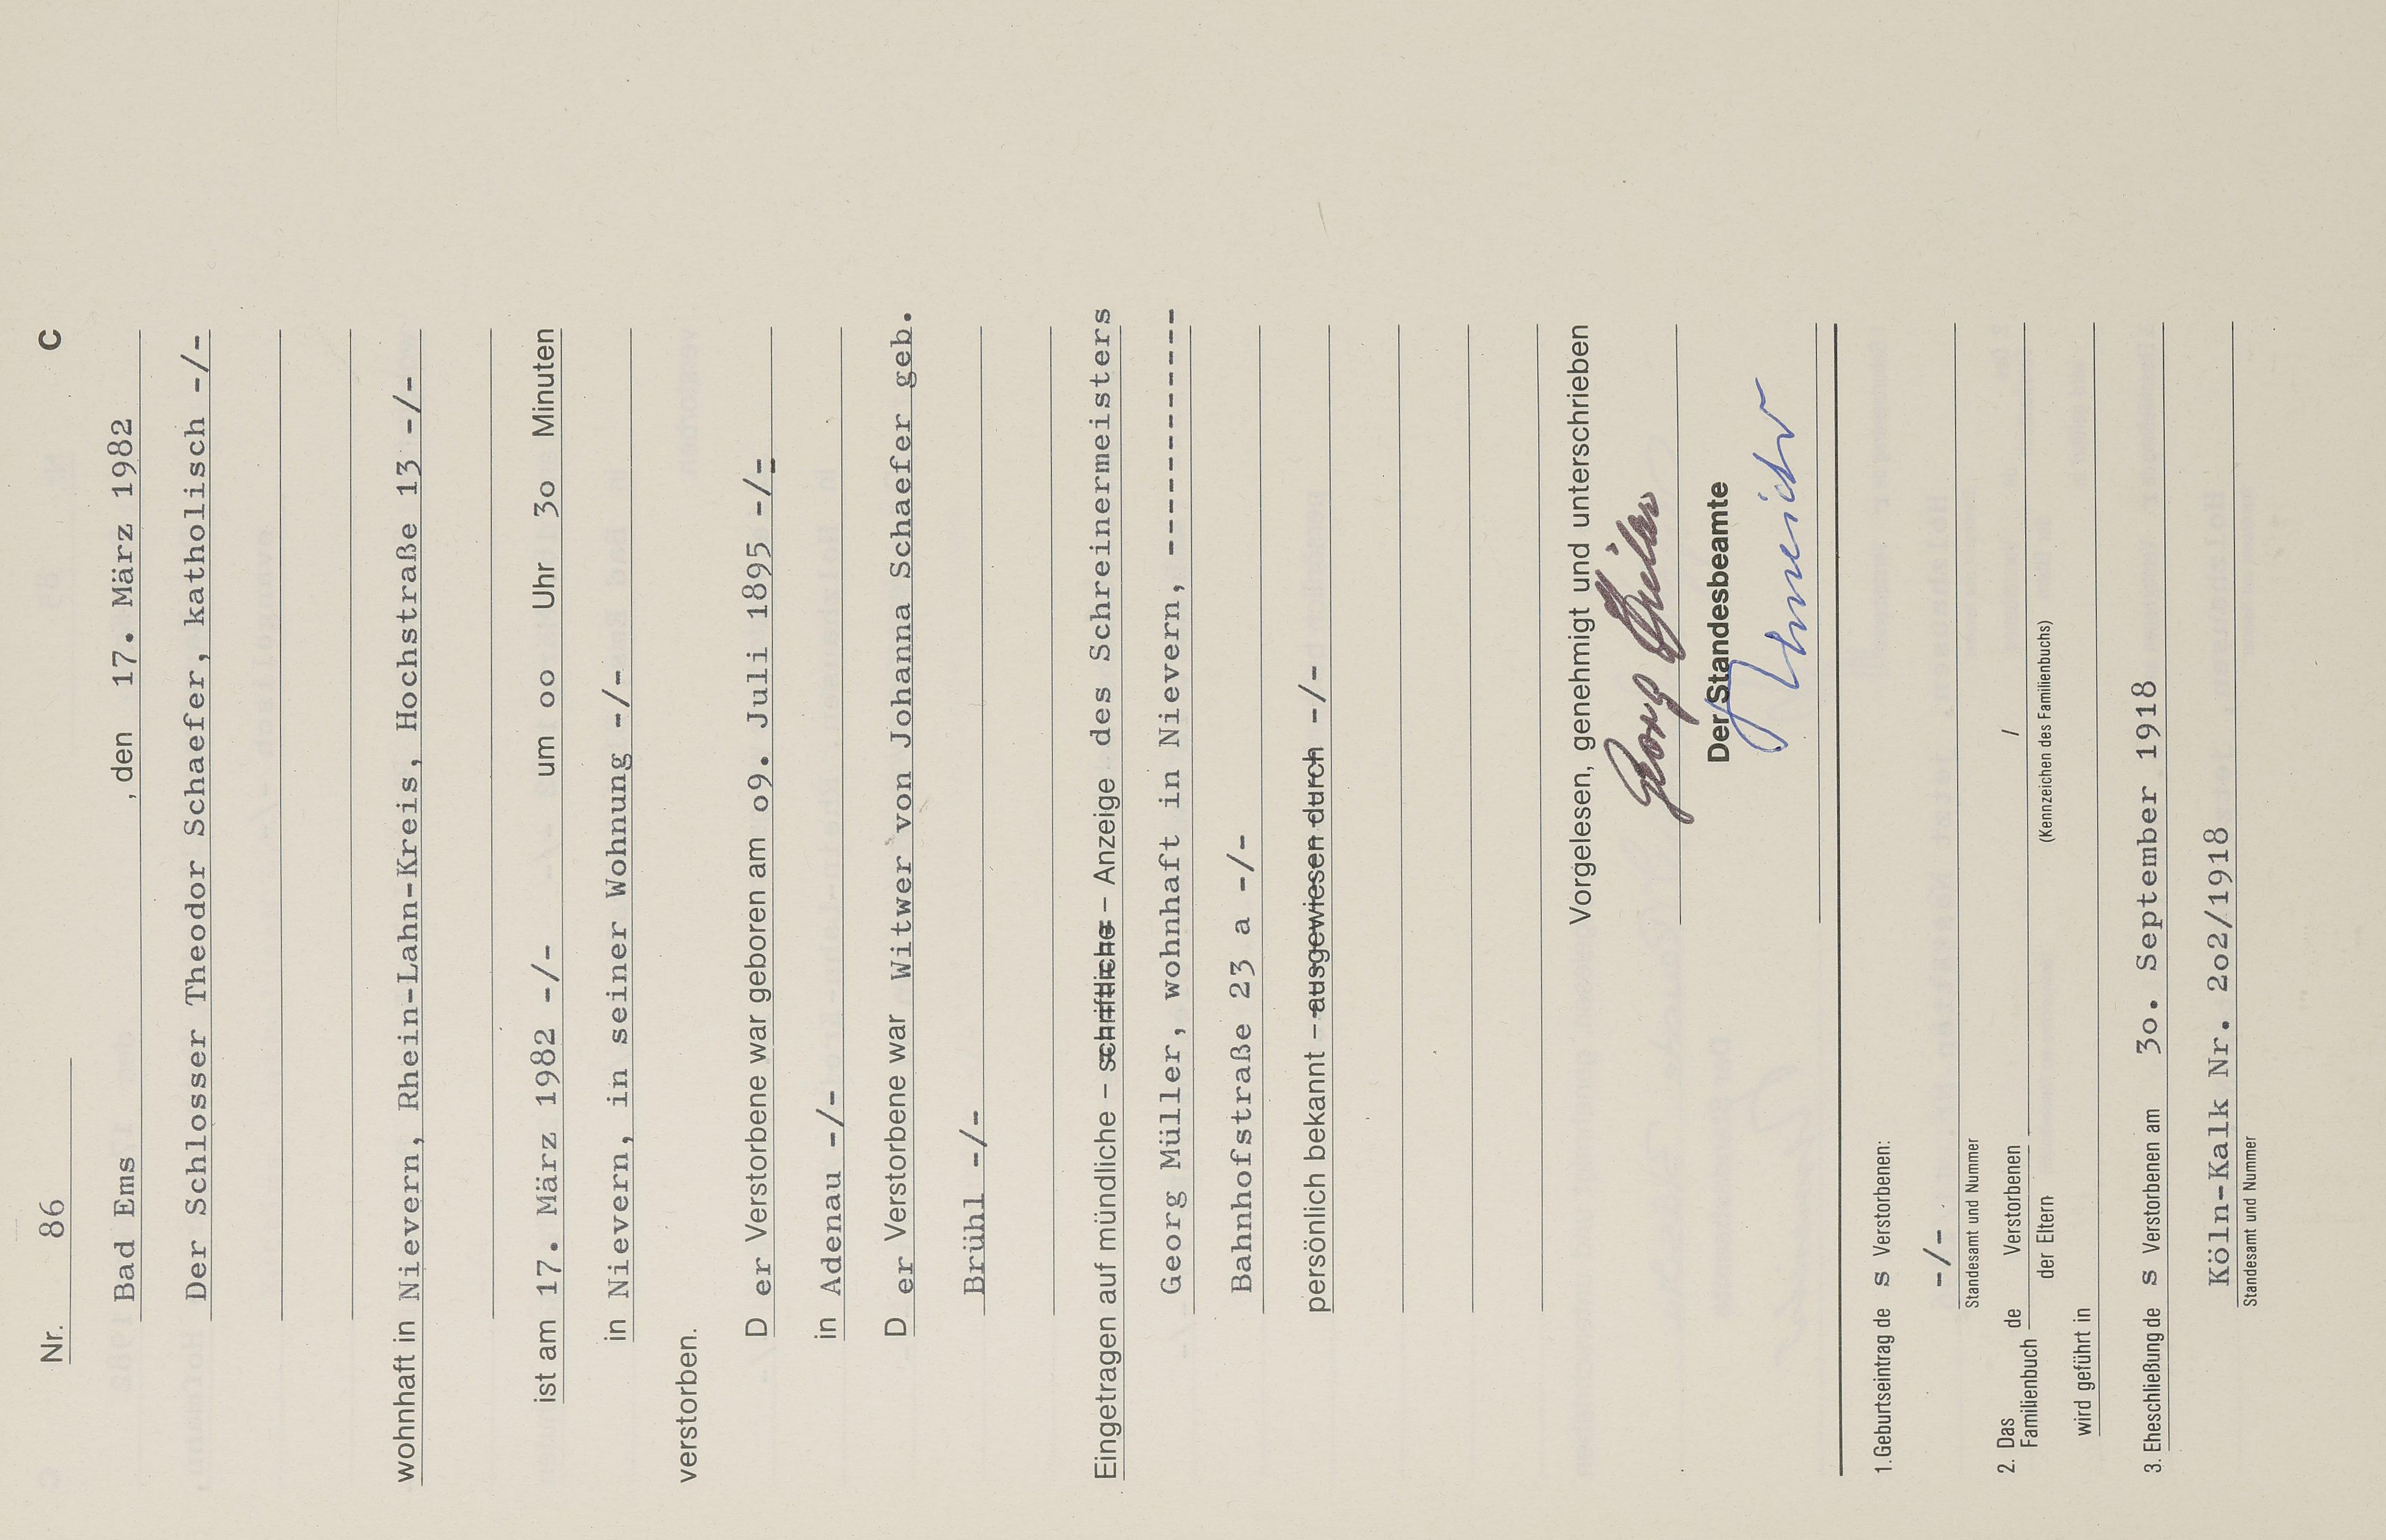 Nr. 86 C
Bad Ems , den 17. März 1982
Der Schlosser Theodor Schaefer, katholisch -/-
wohnhaft in Nievern, Rhein-Lahn-Kreis, Hochstraße 13 -/-
ist am 17. März 1982 -/- um oo Uhr 3o Minuten
in Nievern, in seiner Wohnung -/-
verstorben.
D er Verstorbene war geboren am o9. Juli 1895 -/-
in Adenau -/-
D er Verstorbene war Witwer von Johanna Schaefer geb.
Brühl -/-
Eingetragen auf mündliche – schriftliche – Anzeige des Schreinermeisters
Georg Müller, wohnhaft in Nievern, ------------
Bahnhofstraße 23 a -/-
persönlich bekannt – ausgewiesen durch -/-
Vorgelesen, genehmigt und unterschrieben
Georg Müller
Der Standesbeamte
1.Geburtseintrag de s Verstorbenen:
-/-
Standesamt und Nummer
2. Das Familienbuch de Verstorbenen /
der Eltern (Kennzeichen des Familienbuchs)
wird geführt in
3. Eheschließung de s Verstorbenen am 3o. September 1918
Köln-Kalk Nr. 2o2/1918
Standesamt und Nummer